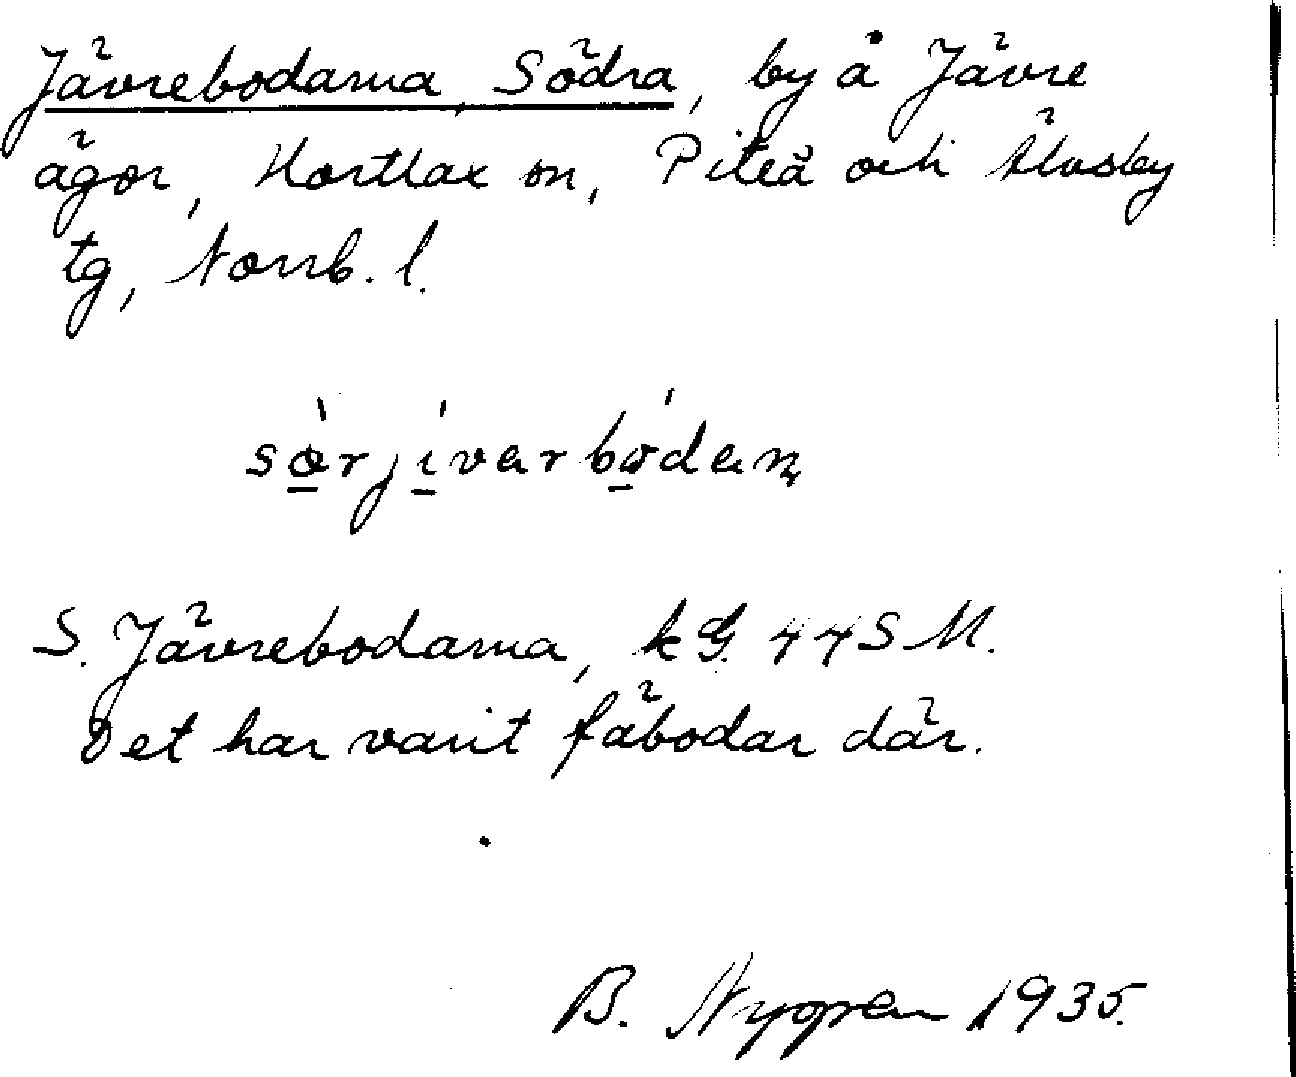 Jävrebodarna, Södra, by å Jävre
ägor, Hortlax sn, Piteå och Älvsby
tg, Norrb. l.
sørjivarbødan
S. Jävrebodarna, kG. 44 S M.
Det har varit fäbodar där.
B. Nygren 1935.